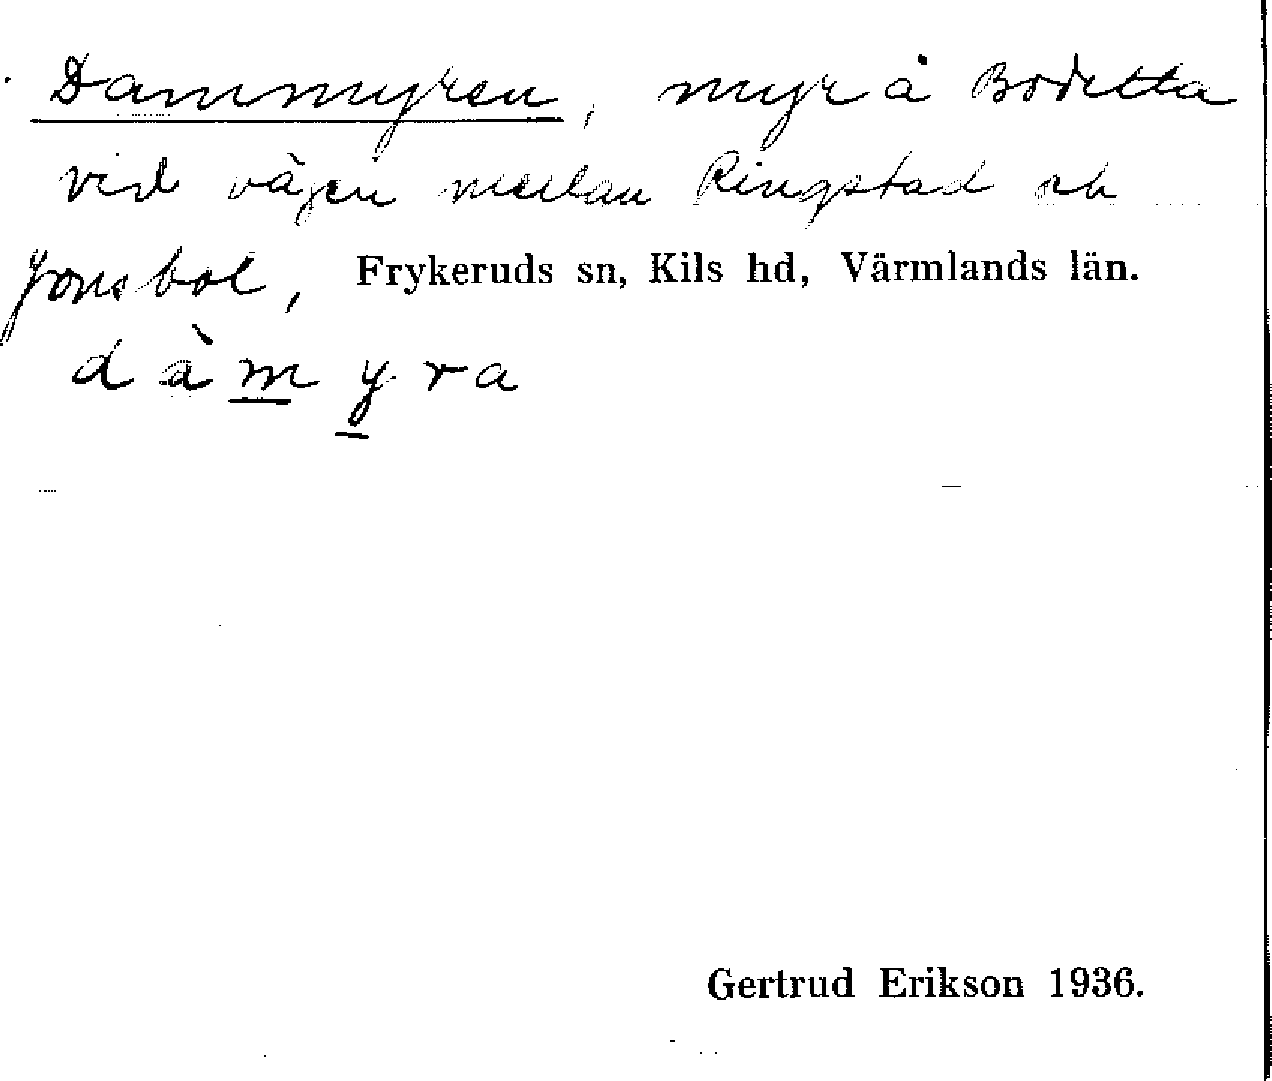 Dammyren, myr å Boda
vid vägen mellan Ringstad och
Jonsbol, Frykeruds sn, Kils hd, Värmlands län.
dàmyra
Gertrud Erikson 1936.